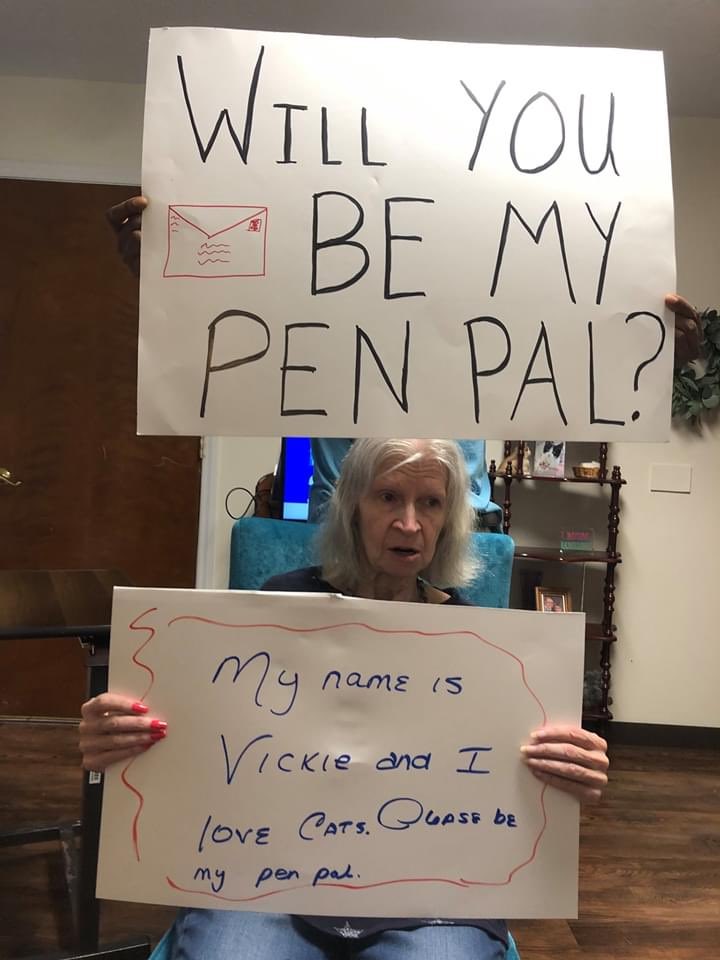 WILL YOU
BE MY
PEN PAL?
My name is
Vickie and I
love Cats. Please be
my pen pal.